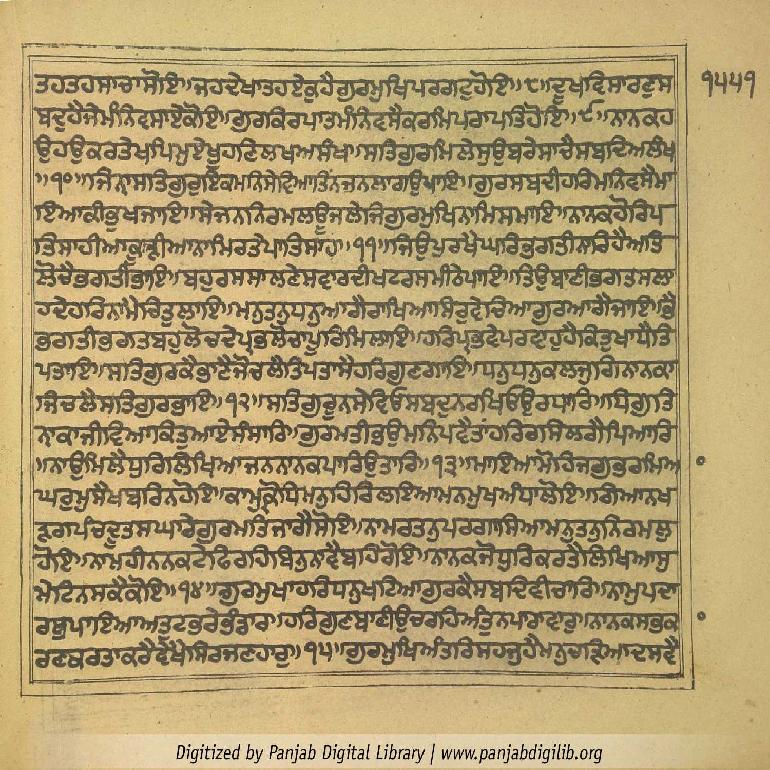 ੧੪੪੧
ਤਹਤਹਸਾਚਾਸੋਇ॥ਜਹਦੇਖਾਤਹਏਕੁਹੈਗੁਰਮੁਖਿਪਰਗਟੁਹੋਇ॥੮॥ਦੂਖਵਿਸਾਰਣੁਸ
ਬਦੁਹੈਜੇਮੰਨਿਵਸਾਏਕੋਇ॥ਗੁਰਕਿਰਪਾਤੇਮਨਿਵਸੈਕਰਮਪਰਾਪਤਿਹੋਇ॥੯॥ਨਾਨਕਹ
ਉਹਉਕਰਤੇਖਪਿਮੁਏਖੂਹਣਿਲਖਅਸੰਖ॥ਸਤਿਗੁਰਮਿਲੇਸੁਉਬਰੇਸਾਚੈਸਬਦਿਅਲੰਖ
॥੧੦॥ਜਿਨਾਸਤਿਗੁਰੁਇਕਮਨਿਸੇਵਿਆਤਿਨਜਨਲਾਗਉਪਾਇ॥ਗੁਰਸਬਦੀਹਰਿਮਨਿਵਸੈਮਾ
ਇਆਕੀਭੁਖਜਾਇ॥ਸੇਜਨਨਿਰਮਲਊਜਲੇਜਿਗੁਰਮੁਖਿਨਾਮਿਸਮਾਇ॥ਨਾਨਕਹੋਰਿਪ
ਤਿਸਾਹੀਆਕੂੜੀਆਨਾਮਿਰਤੇਪਾਤਿਸਾਹ॥੧੧॥ਜਿਉਪੁਰਖੈਘਰਿਭਗਤੀਨਾਰਿਹੈਅਤਿ
ਲੋਚੈਭਗਤੀਭਾਇ॥ਬਹੁਰਸਸਾਲਣੇਸਵਾਰਦੀਖਟਰਸਮੀਠੇਪਾਇ॥ਤਿਉਬਾਣੀਭਗਤਸਲਾ
ਹਦੇਹਰਿਨਾਮੈਚਿਤੁਲਾਇ॥ਮਨੁਤਨੁਧਨੁਆਗੈਰਾਖਿਆਸਿਰੁਵੇਚਿਆਗੁਰਆਗੈਜਾਇ॥ਭੈ
ਭਗਤੀਭਗਤਬਹੁਲੋਚਦੇਪ੍ਰਭਲੋਚਾਪੂਰਿਮਿਲਾਇ॥ਹਰਿਪ੍ਰਭੁਵੇਪਰਵਾਹੁਹੈਕਿਤੁਖਾਧੈਤਿ
ਪਤਾਇ॥ਸਤਿਗੁਰਕੈਭਾਣੈਜੋਚਲੈਤਿਪਤਾਸੈਹਰਿਗੁਣਗਾਇ॥ਧਨੁਧਨੁਕਲਜੁਗਿਨਾਨਕਾ
ਜਿਚਲੈਸਤਿਗੁਰਭਾਇ॥੧੨॥ਸਤਿਗੁਰੂਨਸੇਵਿਓਸਬਦੁਨਰਖਿਓਉਰਧਾਰਿ॥ਧਿਗੁਤਿ
ਨਾਕਾਜੀਵਿਆਕਿਤੁਆਏਸੰਸਾਰਿ॥ਗੁਰਮਤੀਭਉਮਨਿਪਵੈਤਾਂਹਰਿਰਸਿਲਗੈਪਿਆਰਿ
॥ਨਾਉਮਿਲੈਧੁਰਿਲਿਖਿਆਜਨਨਾਨਕਪਾਰਿਉਤਾਰਿ॥੧੩॥ਮਾਇਆਮੋਹਿਜਗੁਭਰਮਿਆ
ਘਰੁਮੁਸੈਖਬਰਿਨਹੋਇ॥ਕਾਮੁਕ੍ਰੋਧਿਮਨੁਹਿਰਿਲਾਇਆਮਨਮੁਖਅੰਧਾਲੋਇ॥ਗਿਆਨਖ
ੜਗਪੰਚਦੂਤਸੰਘਾਰੇਗੁਰਮਤਿਜਾਗੈਸੋਇ॥ਨਾਮਰਤਨੁਪਰਗਾਸਿਆਮਨੁਤਨੁਨਿਰਮਲੁ
ਹੋਇ॥ਨਾਮਹੀਨਨਕਟੇਫਿਰਹਿਬਿਨੁਨਾਵੈਬਹਿਰੋਇ॥ਨਾਨਕਜੋਧੁਰਿਕਰਤੈਲਿਖਿਆਸੁ
ਮੇਟਿਨਸਕੈਕੋਇ॥੧੪॥ਗੁਰਮੁਖਾਹਰਿਧਨੁਖਟਿਆਗੁਰਕੈਸਬਦਿਵੀਚਾਰਿ॥ਨਾਮੁਪਦਾ
ਰਥੁਪਾਇਆਅਤੁਟਭਰੇਭੰਡਾਰਾ॥ਹਰਿਗੁਣਬਾਣੀਉਚਰਹਿਅੰਤੁਨਪਾਰਾਵਾਰੁ॥ਨਾਨਕਸਭਕ
ਰਣਕਰਤਾਕਰੈਵੇਖੈਸਿਰਜਣਹਾਰੁ॥੧੫॥ਗੁਰਮੁਖਿਅੰਤਰਿਸਹਜੁਹੈਮਨੁਚੜਿਆਦਸਵੈ
Digitized by Panjab Digital Library | www.panjabdigilib.org